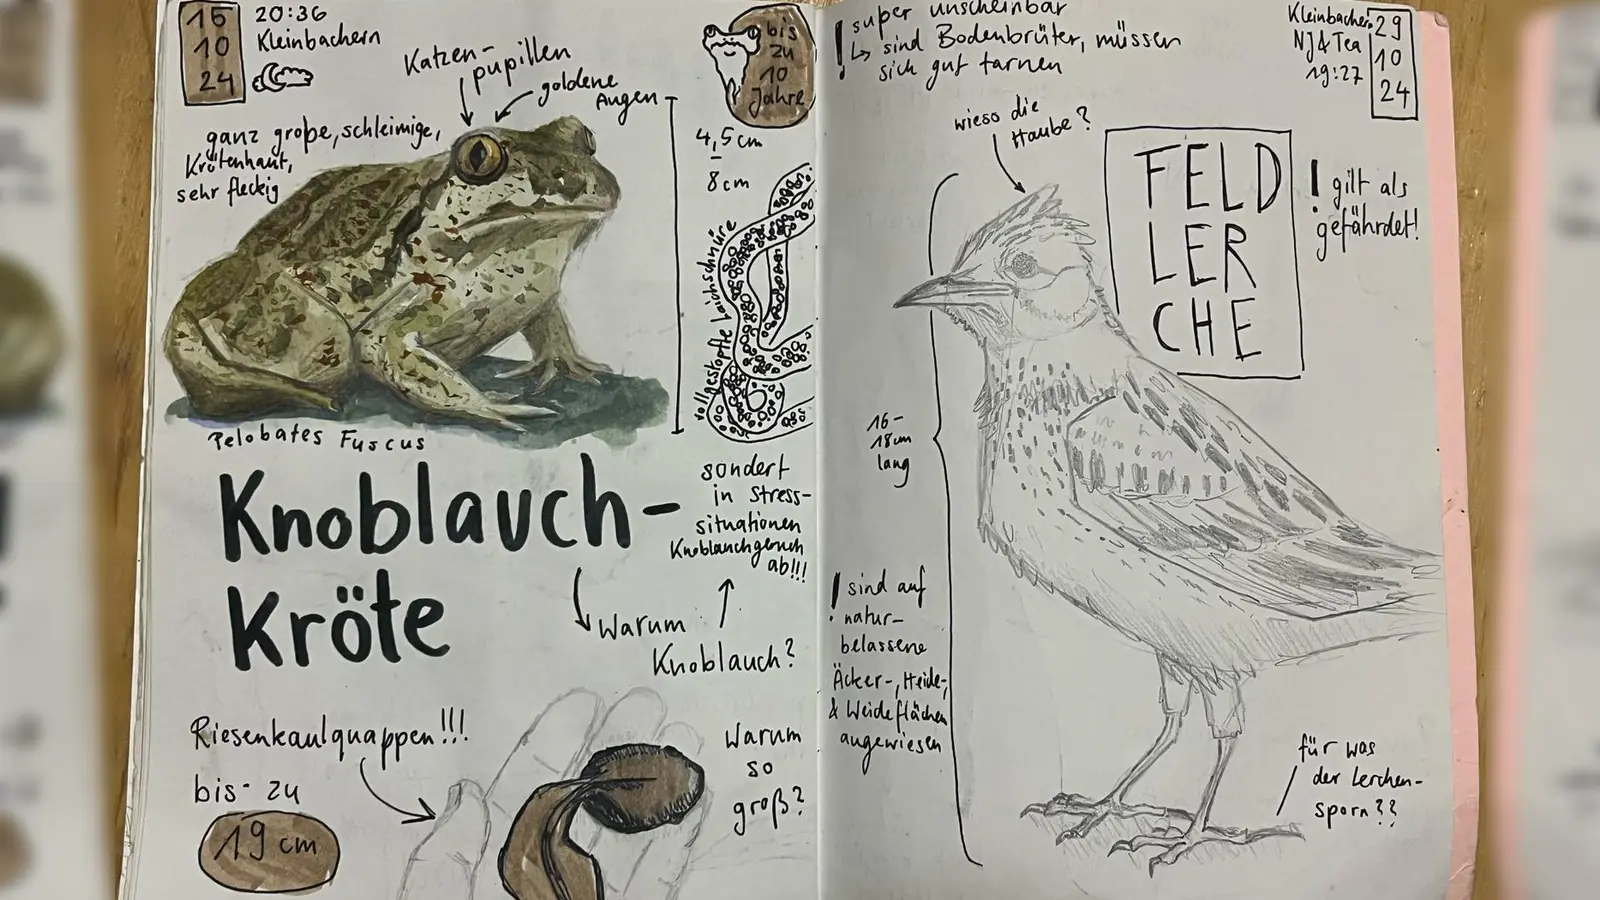 16
10
24
20:36
Kleinbachern
Katzen-
pupillen
goldene
Augen
ganz große, schleimige,
Krötenhaut,
sehr fleckig
bis
zu
10
Jahre
4,5 cm
–
8 cm
vollgestopfte Laichschnüre
Pelobates Fuscus
Knoblauch-
Kröte
sondert
in Stress-
situationen
Knoblauchgeruch
ab!!!
Warum
Knoblauch?
Riesenkaulquappen!!!
bis zu
19 cm
Warum
so
groß?
! super unscheinbar
↳ sind Bodenbrüter, müssen
sich gut tarnen
Kleinbachern
NJ&Tea
19:27
29
10
24
wieso die
Haube?
FELD
LER
CHE
! gilt als
gefährdet!
16-
18cm
lang
! sind auf
natur-
belassene
Äcker-, Heide-,
& Weideflächen
angewiesen
für was
der Lerchen-
sporn??